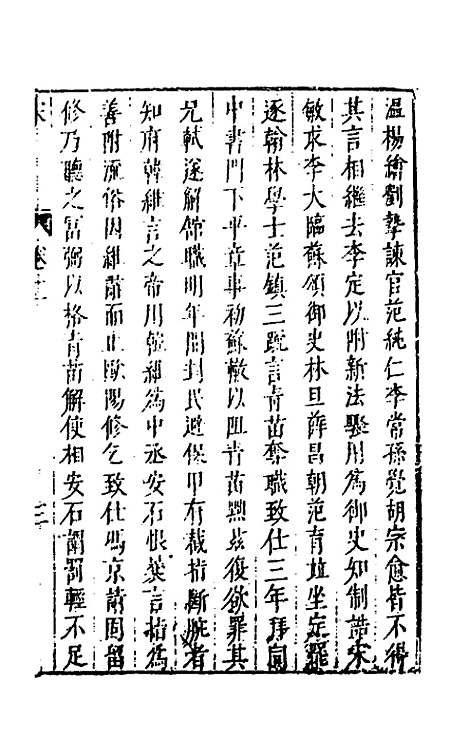 溫楊繪劉摯諫官范純仁李常孫覺胡宗愈皆不得
其言相繼去李定以附新法驟用爲御史知制誥宋
敏求李大臨蘇頌御史林旦薛昌朝范育竝坐定罪
逐翰林學士范鎮三疏言青苗奪職致仕三年拜同
中書門下平章事初蘇轍以阻青苗黜玆復欲罪其
兄軾遂解館職明年開封民避保甲有截指斷腕者
知府韓維言之帝用韓維爲中丞安石恨曩言指爲
善附流俗因維辭而止歐陽修乞致仕馮京請固留
修乃聽之富弼以格青苗解使相安石謂罰輕不足